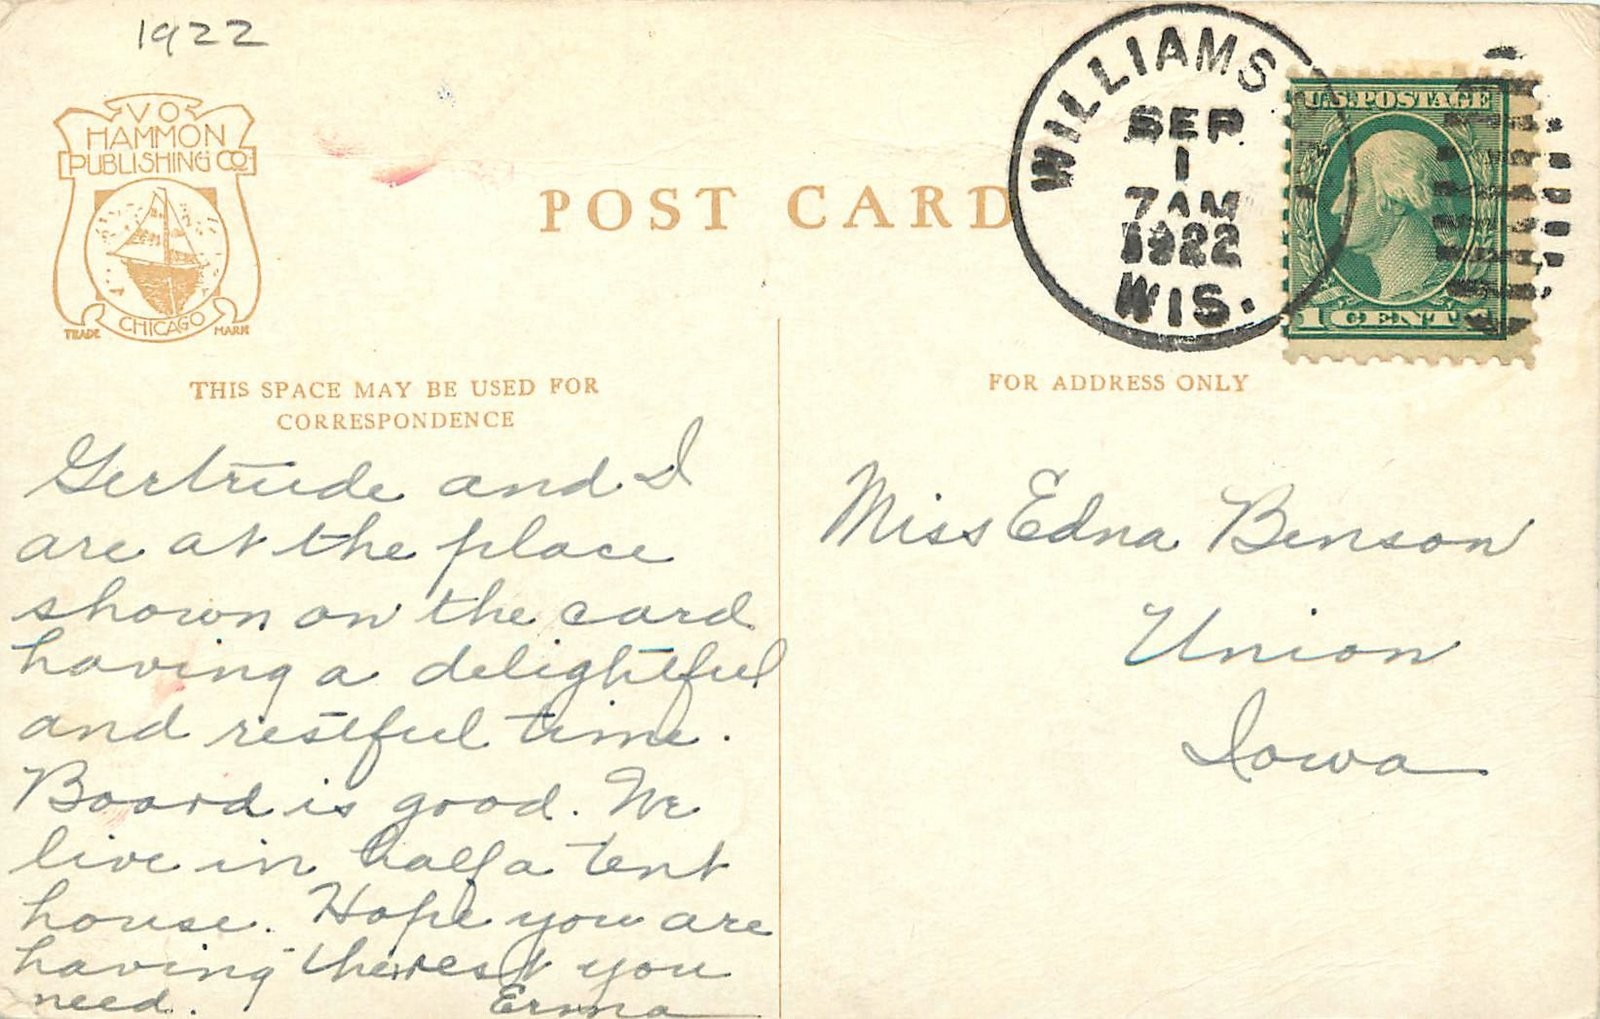 1922
V O
HAMMON
PUBLISHING CO
CHICAGO
TRADE MARK
POST CARD
WILLIAMS
SEP
1
7 AM
1922
WIS.
U.S. POSTAGE
1 CENT
THIS SPACE MAY BE USED FOR
CORRESPONDENCE
FOR ADDRESS ONLY
Gertrude and I
are at the place
shown on the card
having a delightful
and restful time.
Board is good. We
live in half a tent
house. Hope you are
having the rest you
need. Erma
Miss Edna Benson
Union
Iowa